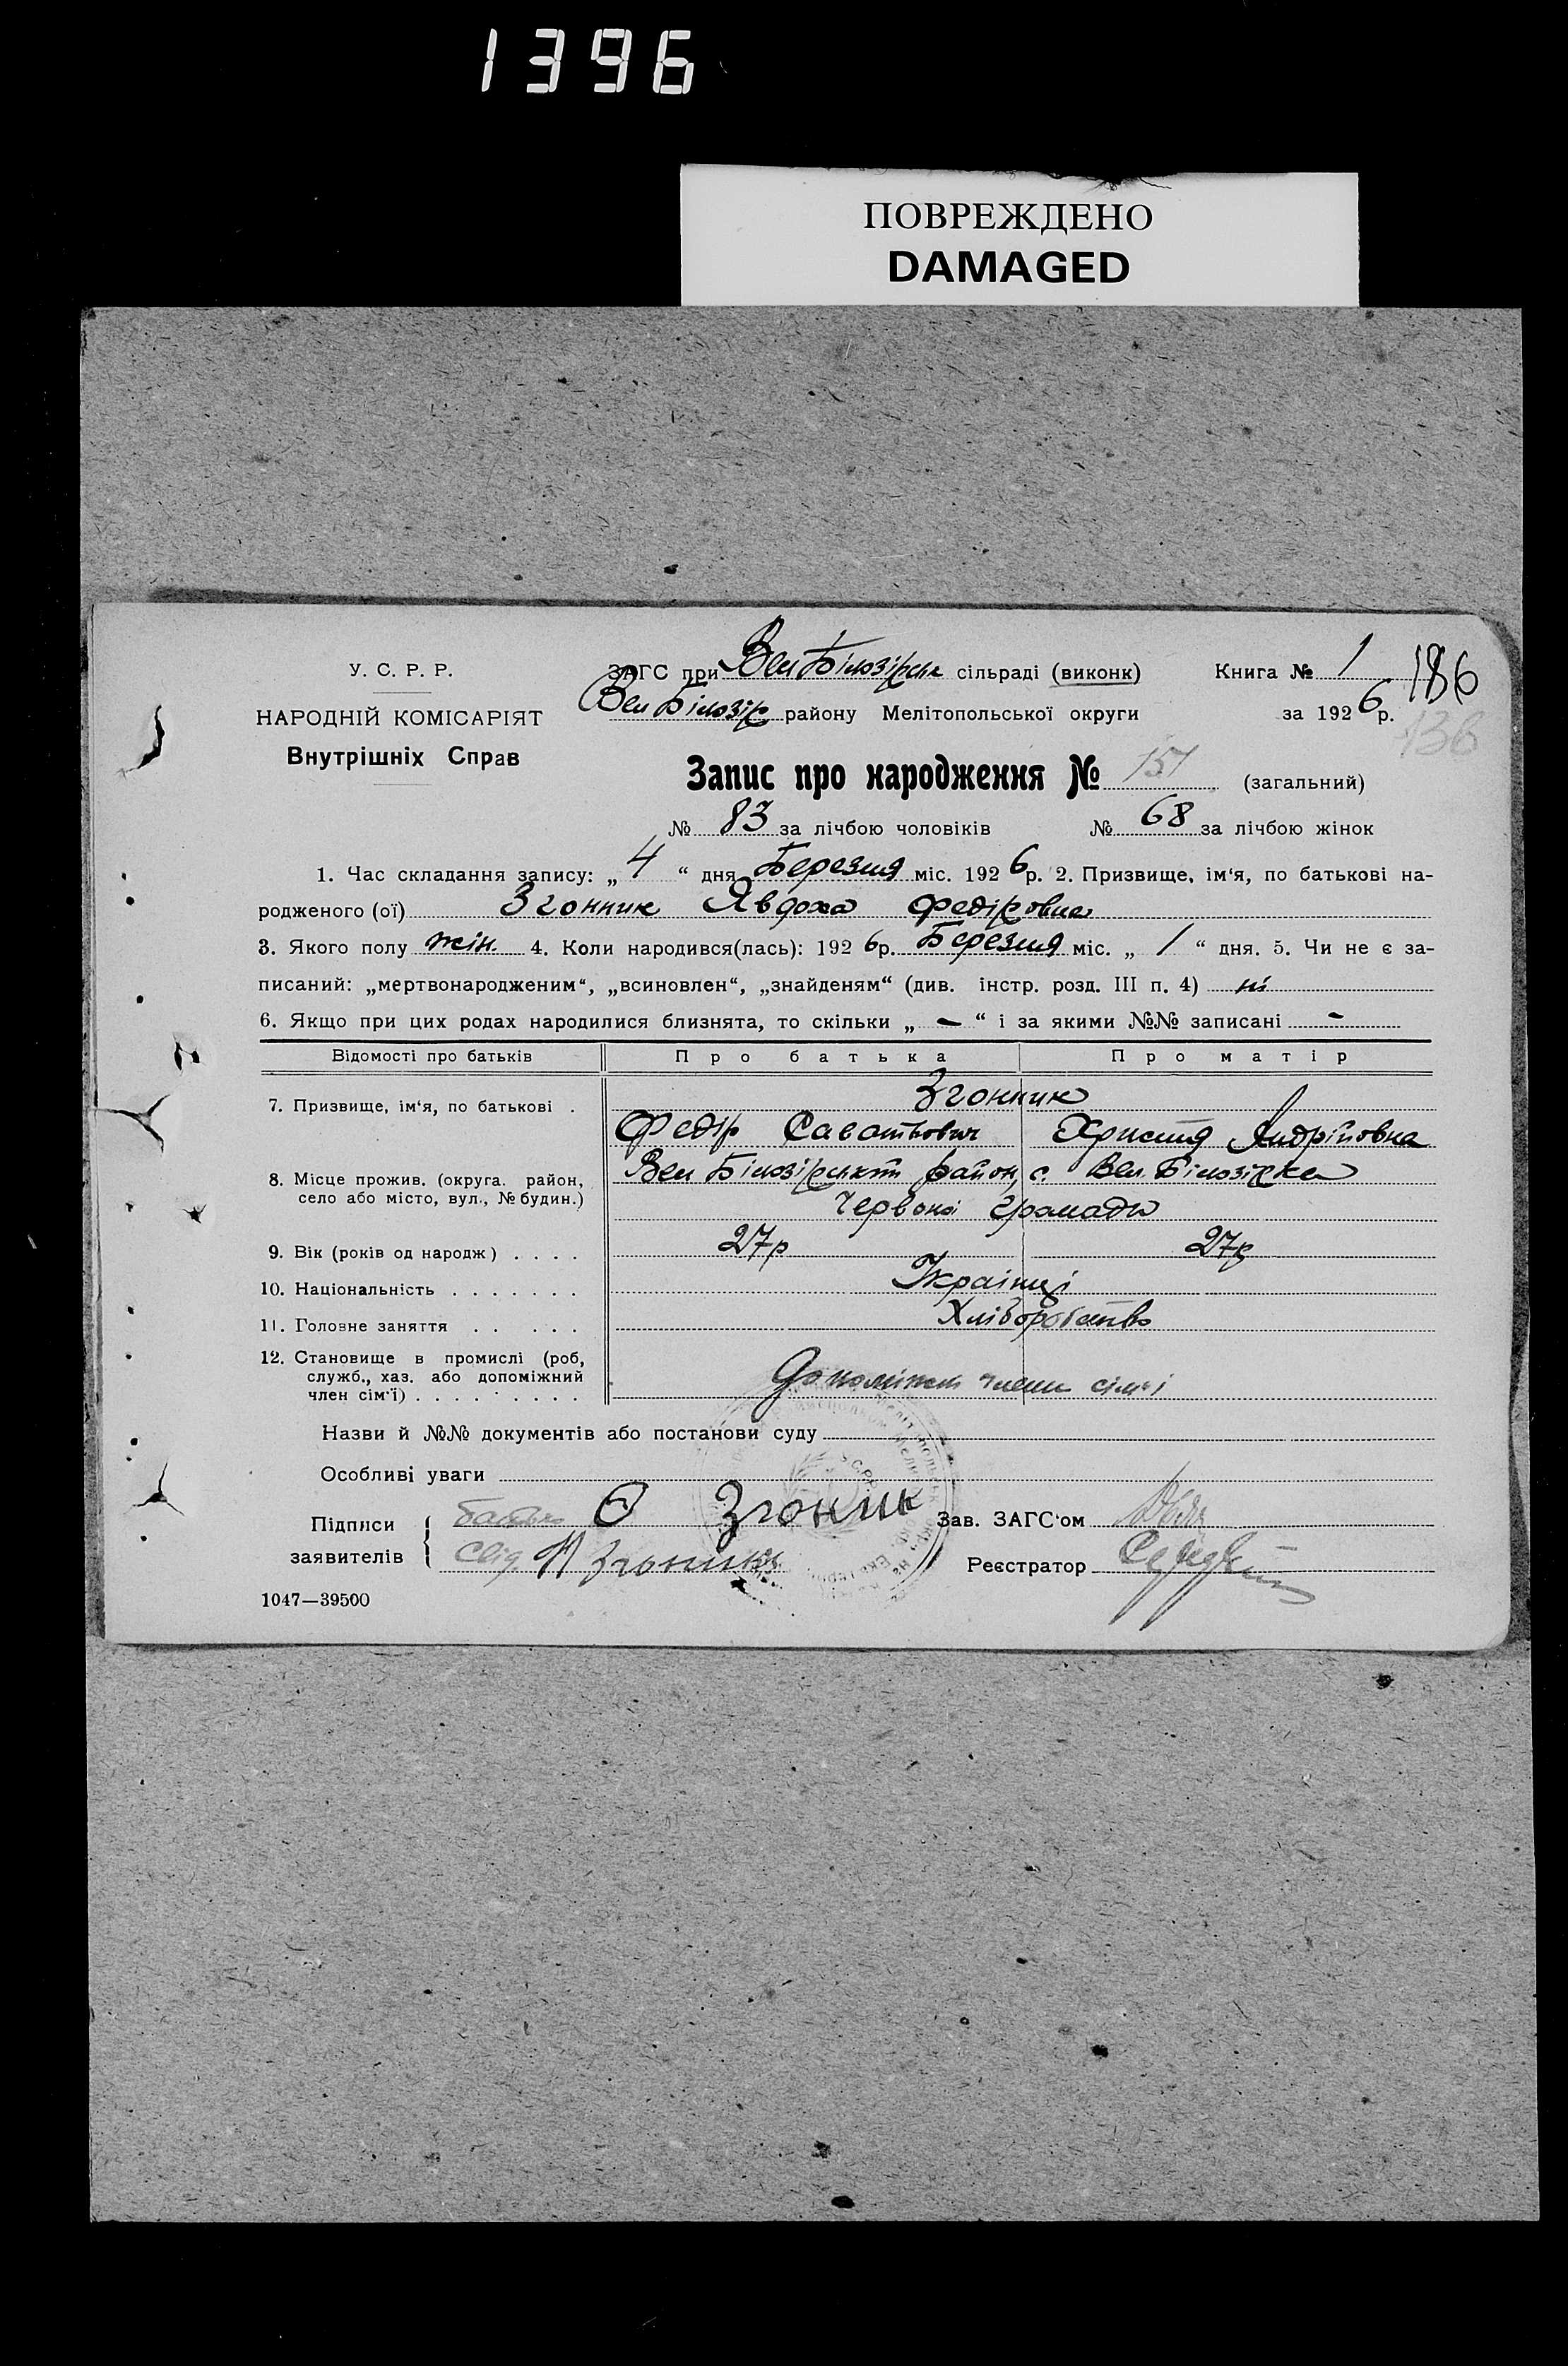 1396
ПОВРЕЖДЕНО
DAMAGED
У. С. Р. Р.
НАРОДНІЙ КОМІСАРІЯТ
Внутрішніх Справ
ЗАГС при Вел Білозірськ сільраді (виконк)
Вел Білозір району Мелітопольської округи
Книга № 1
186
за 1926 р.
136
Запис про народження № 151 (загальний)
№ 83 за лічбою чоловіків № 68 за лічбою жінок
1. Час складання запису: „ 4 “ дня Березня міс. 1926 р. 2. Призвище, ім‘я, по батькові на-
родженого (ої) Згонник Явдоха Федіровна
3. Якого полу жін. 4. Коли народився(лась): 1926 р. Березня міс. „ 1 “ дня. 5. Чи не є за-
писаний: „мертвонародженим“, „всиновлен“, „знайденям“ (див. інстр. розд. III п. 4) ні
6. Якщо при цих родах народилися близнята, то скільки „ — “ і за якими №№ записані -
Відомості про батьків Про батька Про матір
7. Призвище, ім‘я, по батькові . Згонник
Федір Саватьович Христя Андріївна
8. Місце прожив. (округа. район,
село або місто, вул., № будин.)
Вел Білозірський район, с. Вел. Білозірка
Червоної Громади
9. Вік (років од народж) . . . . 27р 27р
10. Національність . . . . . . . Українці
11. Головне заняття . . . . . Хліборобство
12. Становище в промислі (роб,
служб., хаз. або допоміжний
член сім‘ї) . . . . . . . . .
Допоміжні члени сімʼї
Назви й №№ документів або постанови суду
Особливі уваги
Підписи
заявителів
батько Ѳ Згоник
свід. Згонник
Зав. ЗАГС‘ом
Реєстратор
1047—39500